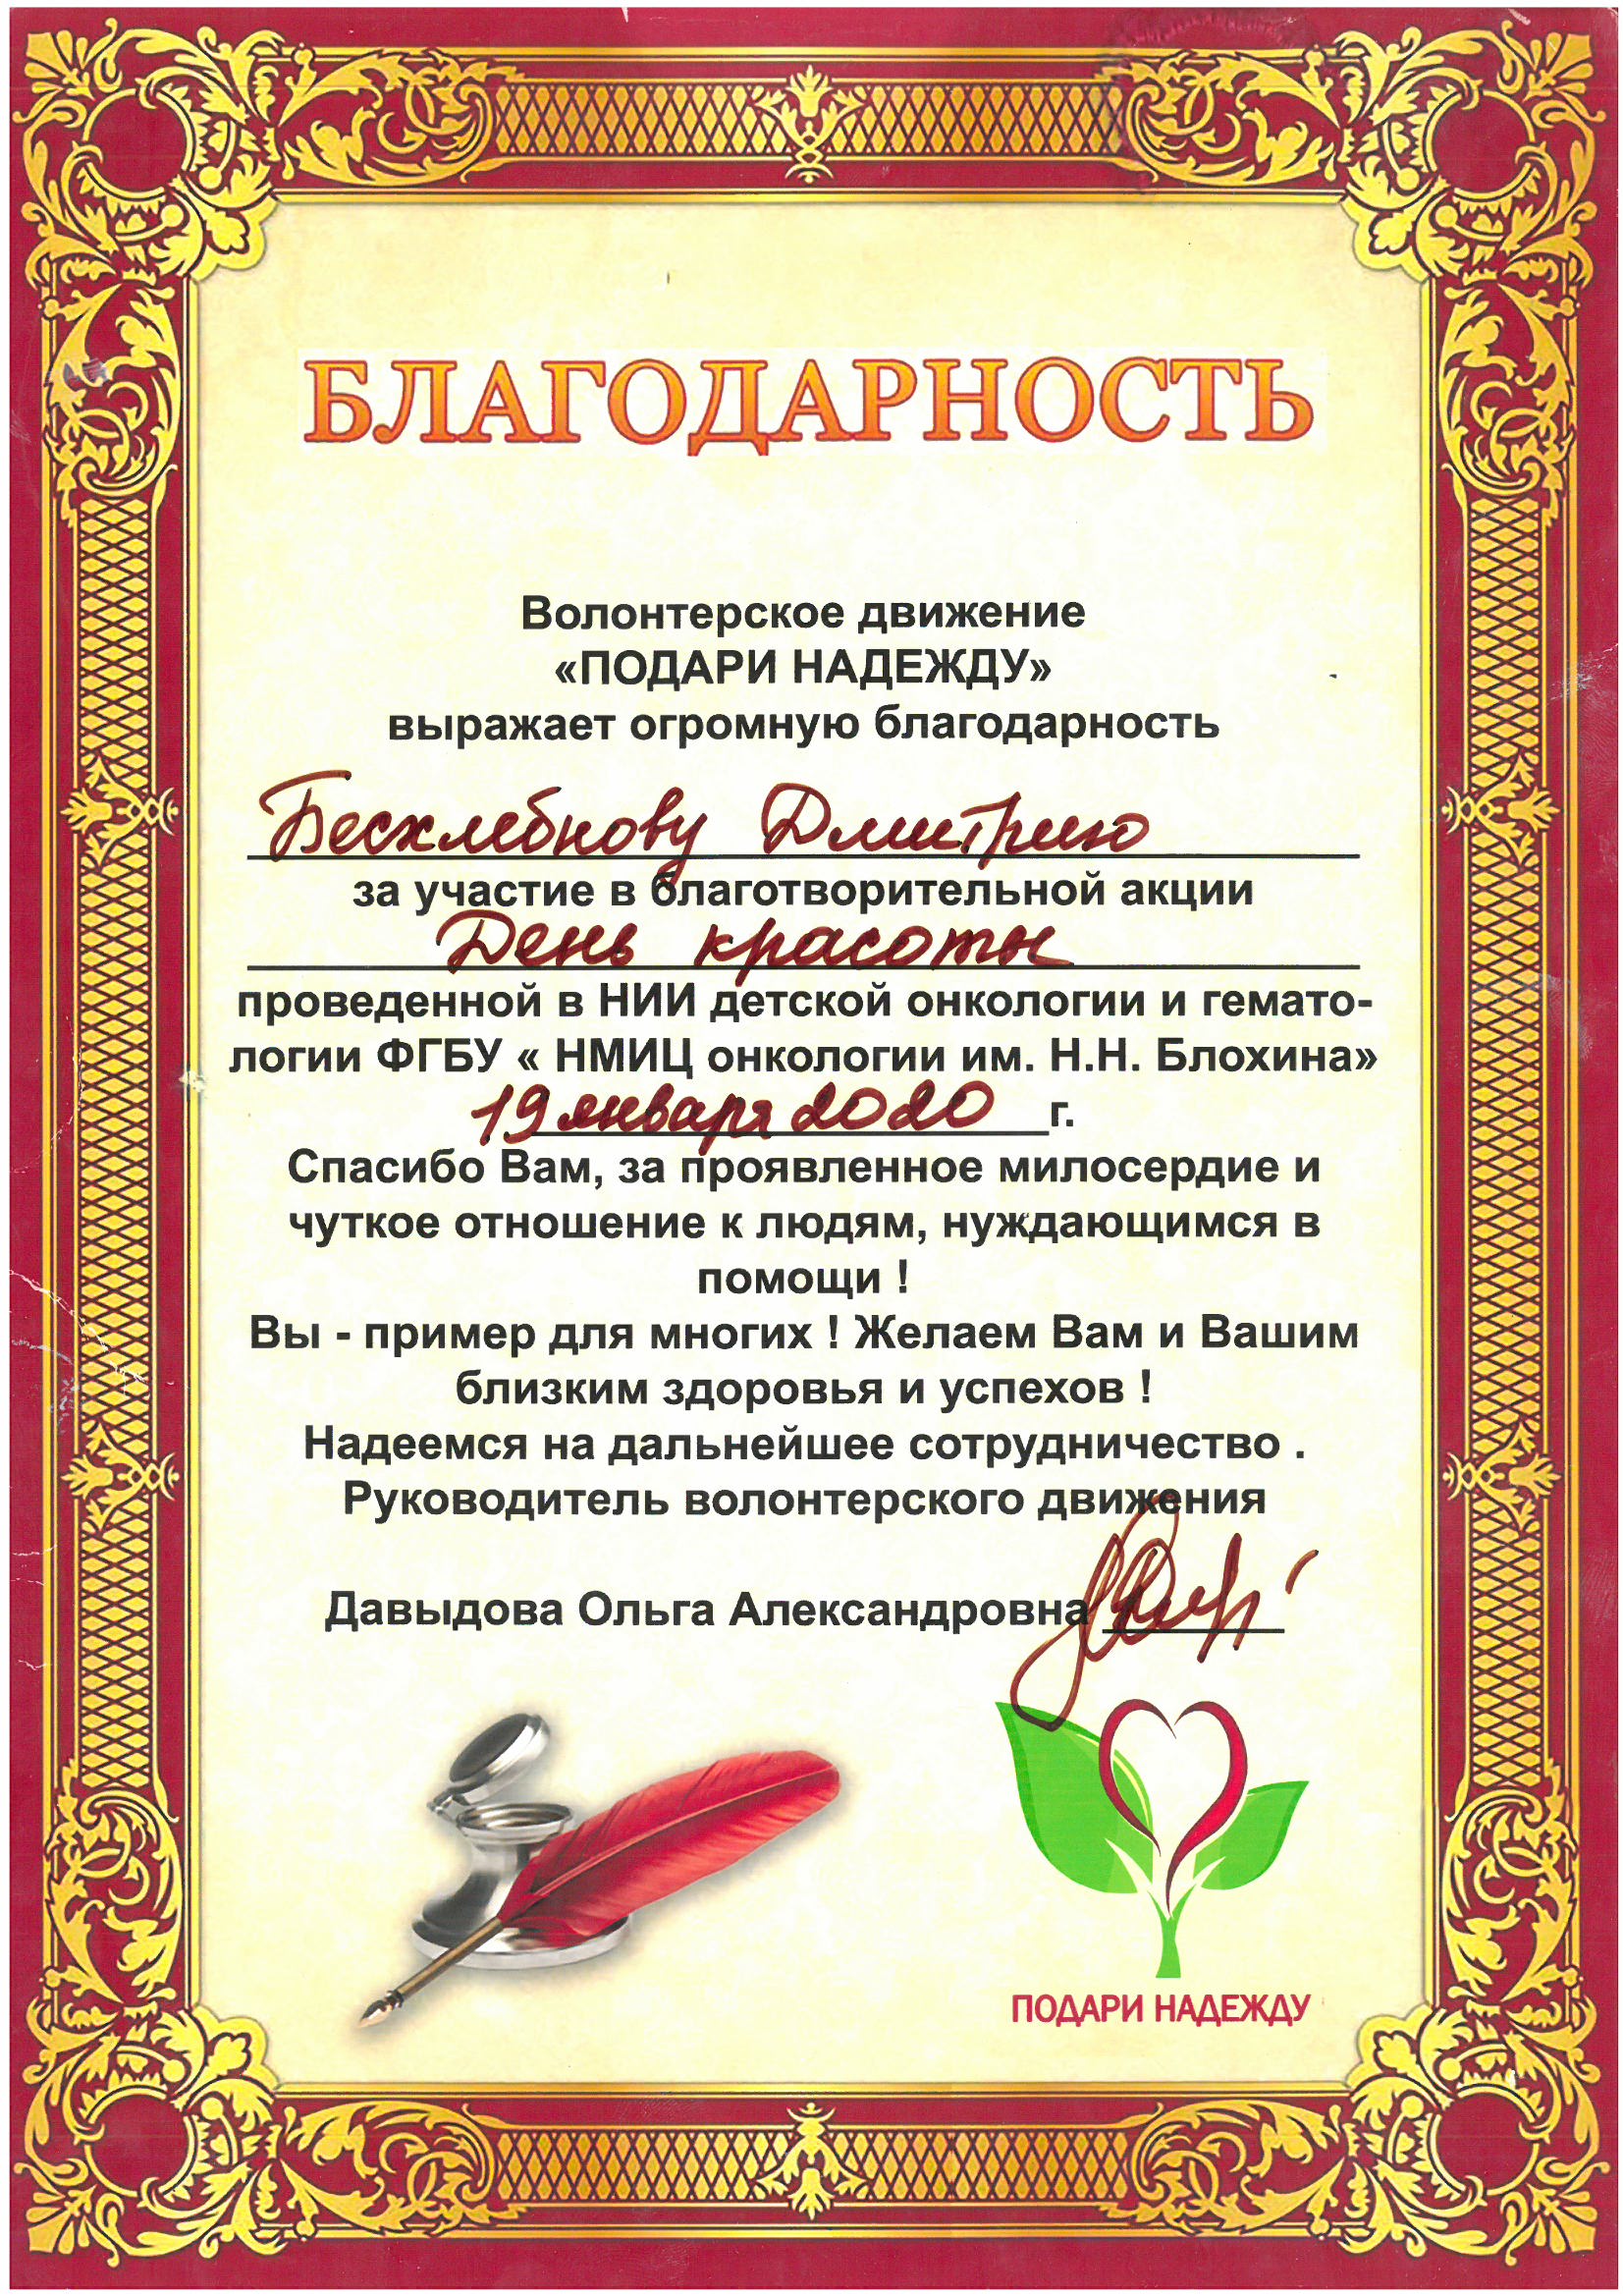 БЛАГОДАРНОСТЬ
Волонтерское движение
«ПОДАРИ НАДЕЖДУ»
выражает огромную благодарность
Бесхлебнову Дмитрию
за участие в благотворительной акции
День красоты
проведенной в НИИ детской онкологии и гемато-
логии ФГБУ « НМИЦ онкологии им. Н.Н. Блохина»
19 января 2020 г.
Спасибо Вам, за проявленное милосердие и
чуткое отношение к людям, нуждающимся в
помощи !
Вы - пример для многих ! Желаем Вам и Вашим
близким здоровья и успехов !
Надеемся на дальнейшее сотрудничество .
Руководитель волонтерского движения
Давыдова Ольга Александровна
ПОДАРИ НАДЕЖДУ